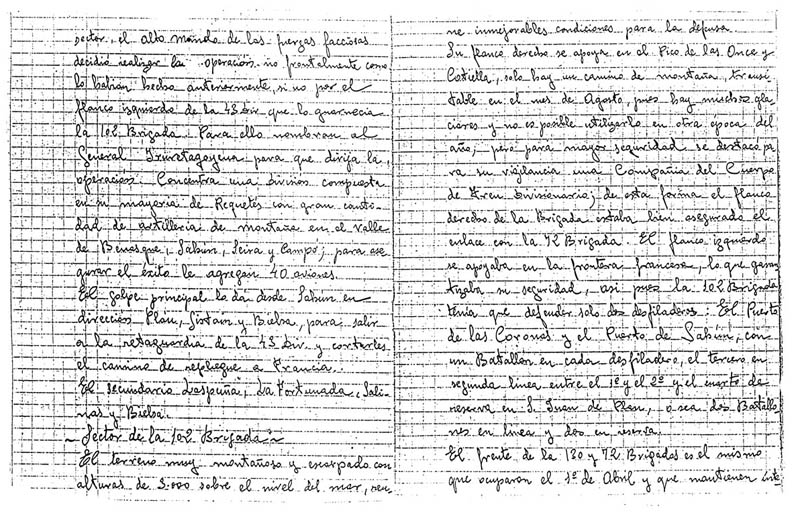 sector, el alto mando de las fuerzas facciosas
decidió realizar la operación no frontalmente como
lo habían hecho anteriormente, si no por el
flanco izquierdo de la 43 Div. que lo guarnecia
la 102 Brigada. Para ello nombran al
General Iruretagoyena para que dirija la
operación. Concentra una división compuesta
en su mayeria de Requetés con gran canti-
dad de artilleria de montaña en el valle
de Benasque, Sahun, Seira y Campo; para ase-
gurar el éxito le agregan 40 aviones.
El golpe principal lo da desde Sahun en
dirección Plan, Gistain y Bielsa, para salir
a la retaguardia de la 43 Div. y cortarles
el camino de repliegue a Francia.
El secundario Laspuña, La Fortunada, Sali-
nas y Bielsa.
~ Sector de la 102 Brigada ~
El terreno muy montañoso y escarpado con
alturas de 3.000 sobre el nivel del mar, reu-
ne inmejorables condiciones para la defensa.
Su flanco derecho se apoya en el Pico de las Once y
Cotiella, solo hay un camino de montaña, transi-
table en el mes de Agosto, pues hay muchos gla-
ciares y no es posible utilizarlo en otra época del
año; pero para mayor seguridad se destacó pa-
ra su vigilancia una Compañia del Cuerpo
de Tren Divisionario; de esta forma el flanco
derecho de la Brigada estaba bien asegurado el
enlace con la 72 Brigada. El flanco izquierdo
se apoyaba en la frontera francesa, lo que garan-
tizaba su seguridad, asi pues la 102 Brigada
tenia que defender solo dos desfiladeros: El Puerto
de las Coronas y el Puerto de Sahún, con
un Batallón en cada desfiladero, el tercero en
segunda linea entre el 1º y el 2º y el cuarto de
reserva en S. Juan de Plan, o sea dos Batallo-
nes en linea y dos en reserva.
El frente de la 130 y 72 Brigadas es el mismo
que ocuparon el 1º de Abril y que mantienen